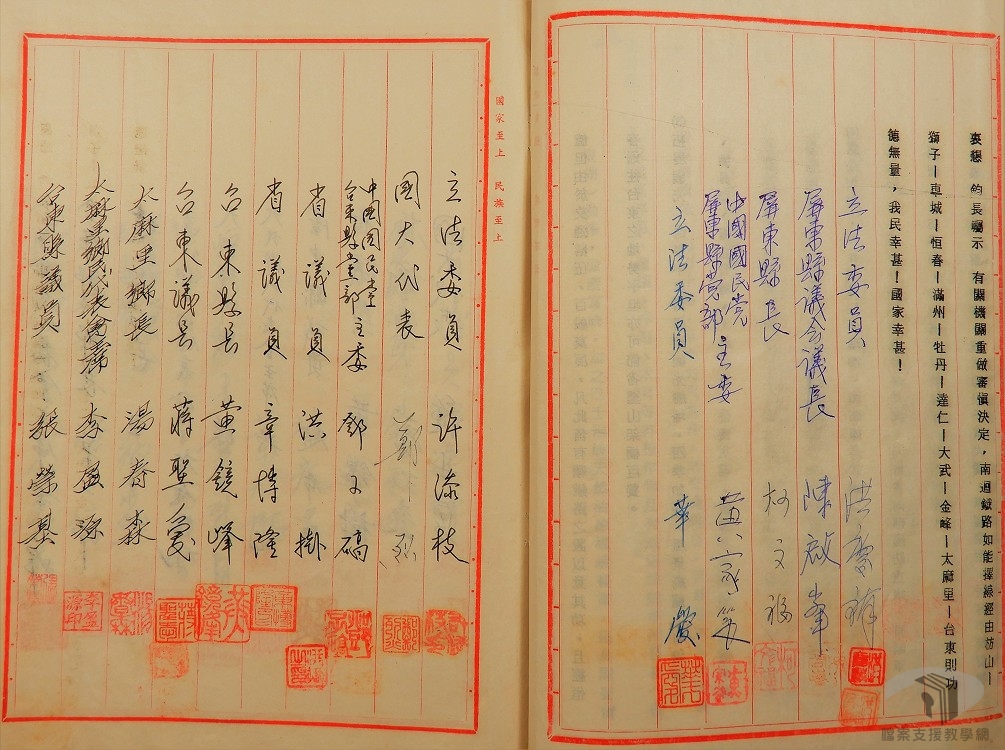 衷懇　鈞長囑示　有關機關重做審慎決定，南迴鐵路如能擇線經由枋山—
獅子—車城—恒春—滿州—牡丹—達仁—大武—金峰—太麻里—台東則功
德無量，我民幸甚！國家幸甚！
立法委員
屏東縣議会議長 陳啟峯
屏東縣長 柯文福
中國國民党
屏東縣党部主委
立法委員 華
國家至上　民族至上
立法委員 許添枝
國大代表 鄭烈
中國國民黨
台東縣黨部主委
省議員 洪掛
省議員 章博隆
台東縣長 黃鏡峰
台東議長 蔣聖愛
太麻里鄉長 湯春森
太麻里鄉民代表會主席 李盈源
台東縣議員 張榮基
檔案支援教學網